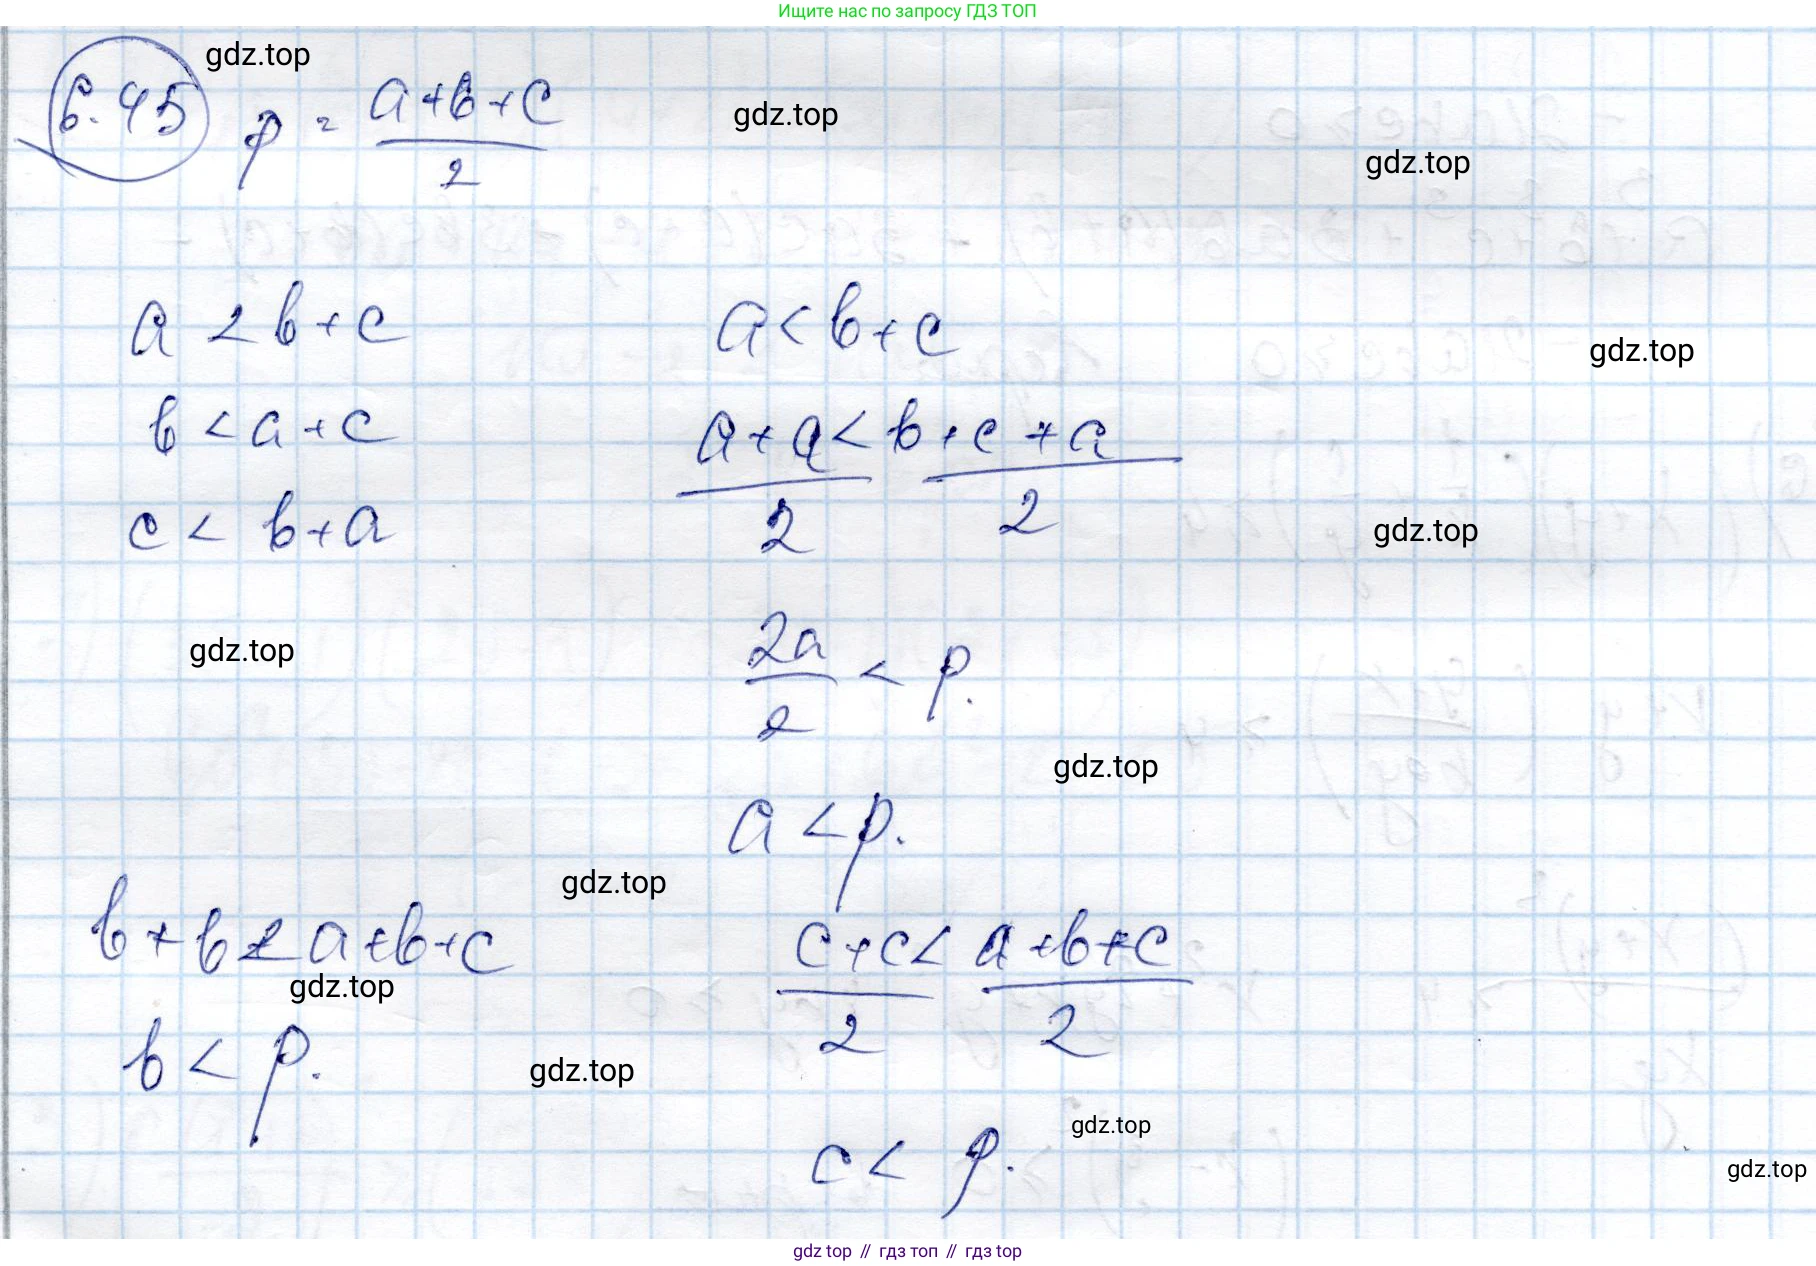 Ищите нас по запросу ГДЗ ТОП
gdz.top
6.45 p = (a+b+c)/2
gdz.top
gdz.top
a < b+c
a < b+c
gdz.top
b < a+c
(a+a)/2 < (b+c+a)/2
c < b+a
gdz.top
gdz.top
2a/2 < p.
gdz.top
a < p.
gdz.top
b+b < a+b+c
(c+c)/2 < (a+b+c)/2
gdz.top
b < p.
gdz.top
gdz.top
c < p.
gdz.top
gdz top // гдз топ // гдз top